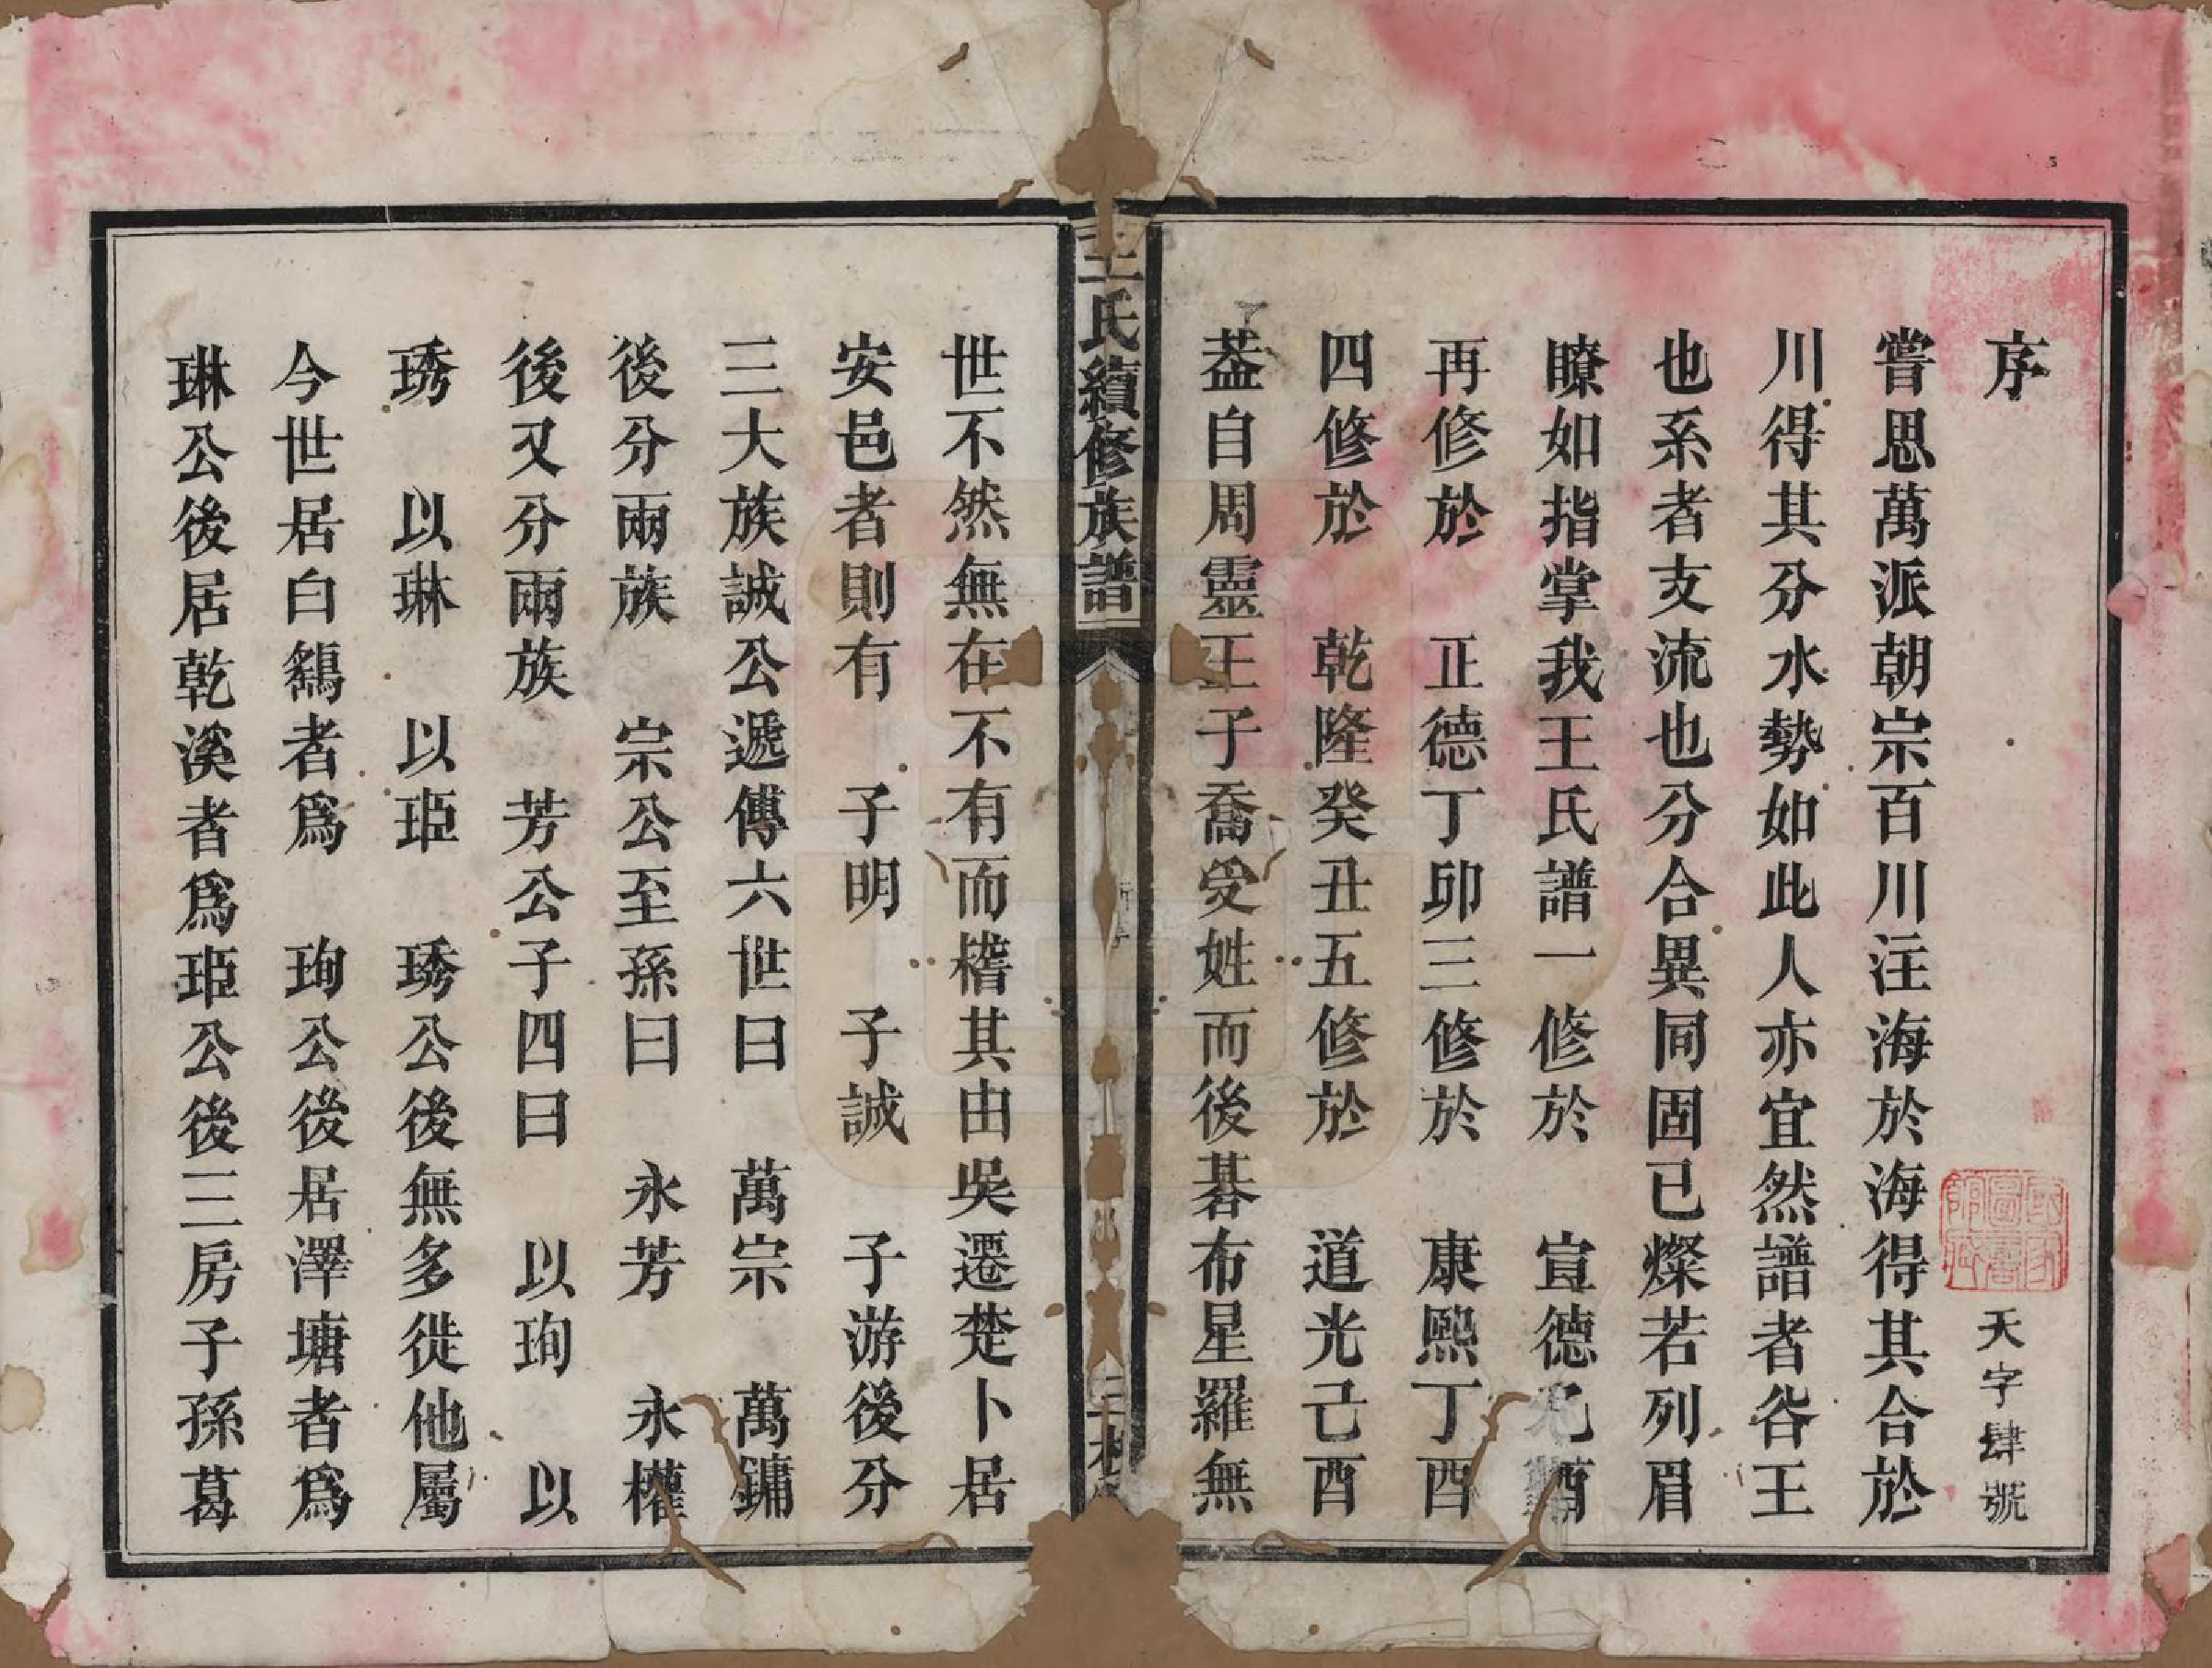 序
天字肆號
嘗思萬派朝宗百川注海於海得其合於
川得其分水勢如此人亦宜然譜者谷王
也系者支流也分合異同固已燦若列眉
瞭如指掌我王氏譜一修於　宣德
再修於　正德丁卯三修於　康熙丁酉
四修於　乾隆癸丑五修於　道光己酉
葢自周靈王子喬受姓而後碁布星羅無
王氏續修族譜
世不然無在不有而稽其由吳遷楚卜居
安邑者則有　子明　子誠　子游後分
三大族誠公遞傳六世曰　萬宗　萬鏞
後分兩族　宗公至孫曰　永芳　永權
後又分兩族　芳公子四曰　以珣　以
琇　以琳　以𤥁　琇公後無多徙他屬
今世居白鷂者爲　珣公後居澤塘者爲
琳公後居乾溪者爲𤥁公後三房子孫葛